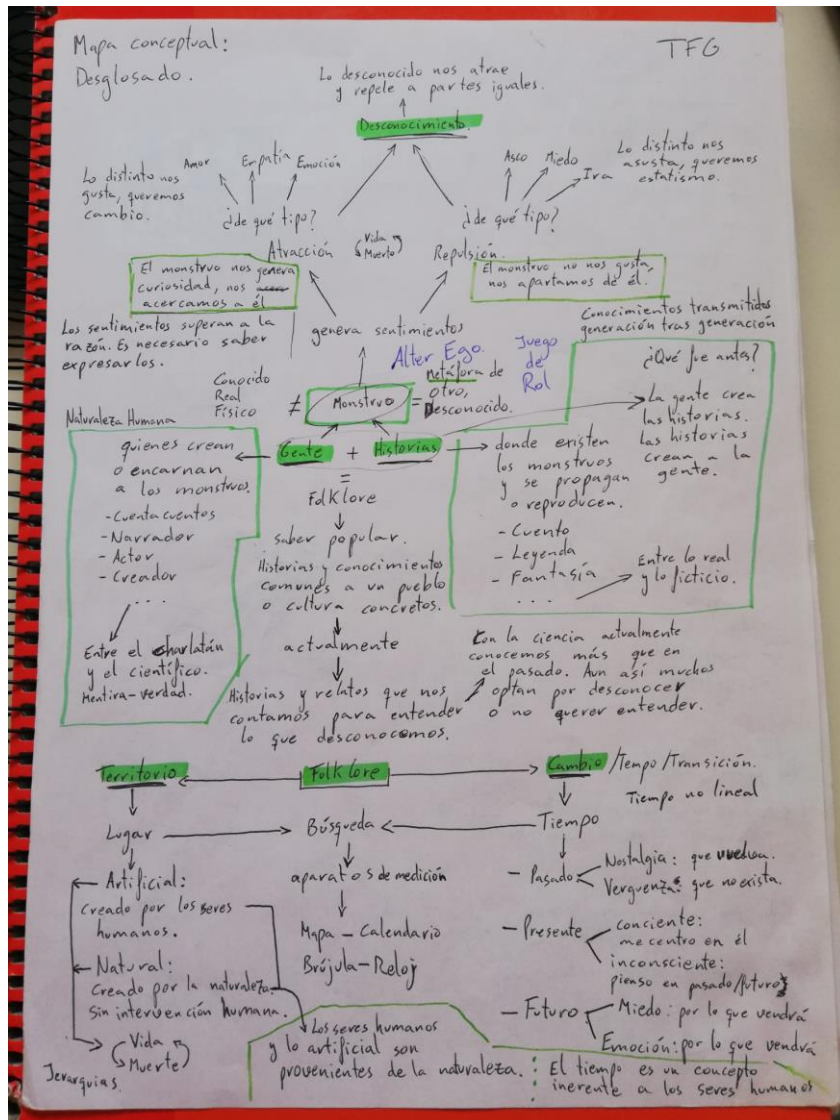 Mapa conceptual:
Desglosado.
TFG
Lo desconocido nos atrae
y repele a partes iguales.
Desconocimiento.
Lo distinto nos
gusta, queremos
cambio.
Amor
Empatía
Emoción
¿de qué tipo?
Asco
Miedo
Ira
¿de qué tipo?
Lo distinto nos
asusta, queremos
estatismo.
Atracción
Vida
Muerte
Repulsión.
El monstruo nos genera
curiosidad, nos
acercamos a él
El monstruo no nos gusta,
nos apartamos de él.
Los sentimientos superan a la
razón. Es necesario saber
expresarlos.
genera sentimientos
Conocimientos transmitidos
generación tras generación
Alter Ego.
Juego
de
Rol
Conocido
Real
Físico
≠
Monstruo
=
Metáfora de
otro,
Desconocido.
¿Qué fue antes?
La gente crea
las historias.
las historias
crean a la
gente.
Naturaleza Humana
quienes crean
o encarnan
a los monstruos.
- Cuentacuentos
- Narrador
- Actor
- Creador
...
Entre el charlatán
y el científico.
Mentira-verdad.
Gente + Historias
=
Folklore
saber popular.
Historias y conocimientos
comunes a un pueblo
o cultura concretos.
actualmente
Historias y relatos que nos
contamos para entender
lo que desconocemos.
donde existen
los monstruos
y se propagan
o reproducen.
- Cuento
- Leyenda
- Fantasía
...
Entre lo real
y lo ficticio.
Con la ciencia actualmente
conocemos más que en
el pasado. Aun así muchos
optan por desconocer
o no querer entender.
Territorio
Folklore
Cambio /Tempo /Transición.
Tiempo no lineal
Lugar
Búsqueda
Tiempo
Artificial:
creado por los seres
humanos.
Natural:
Creado por la naturaleza.
Sin intervención humana.
Vida
Muerte
Jerarquias.
aparatos de medición
Mapa - Calendario
Brújula - Reloj
Los seres humanos
y lo artificial son
provenientes de la naturaleza.
- Pasado
Nostalgia: que vuelva.
Verguenza: que no exista.
- Presente
conciente:
me centro en él
inconsciente:
pienso en pasado/futuro
- Futuro
Miedo: por lo que vendrá
Emoción: por lo que vendrá
El tiempo es un concepto
inerente a los seres humanos